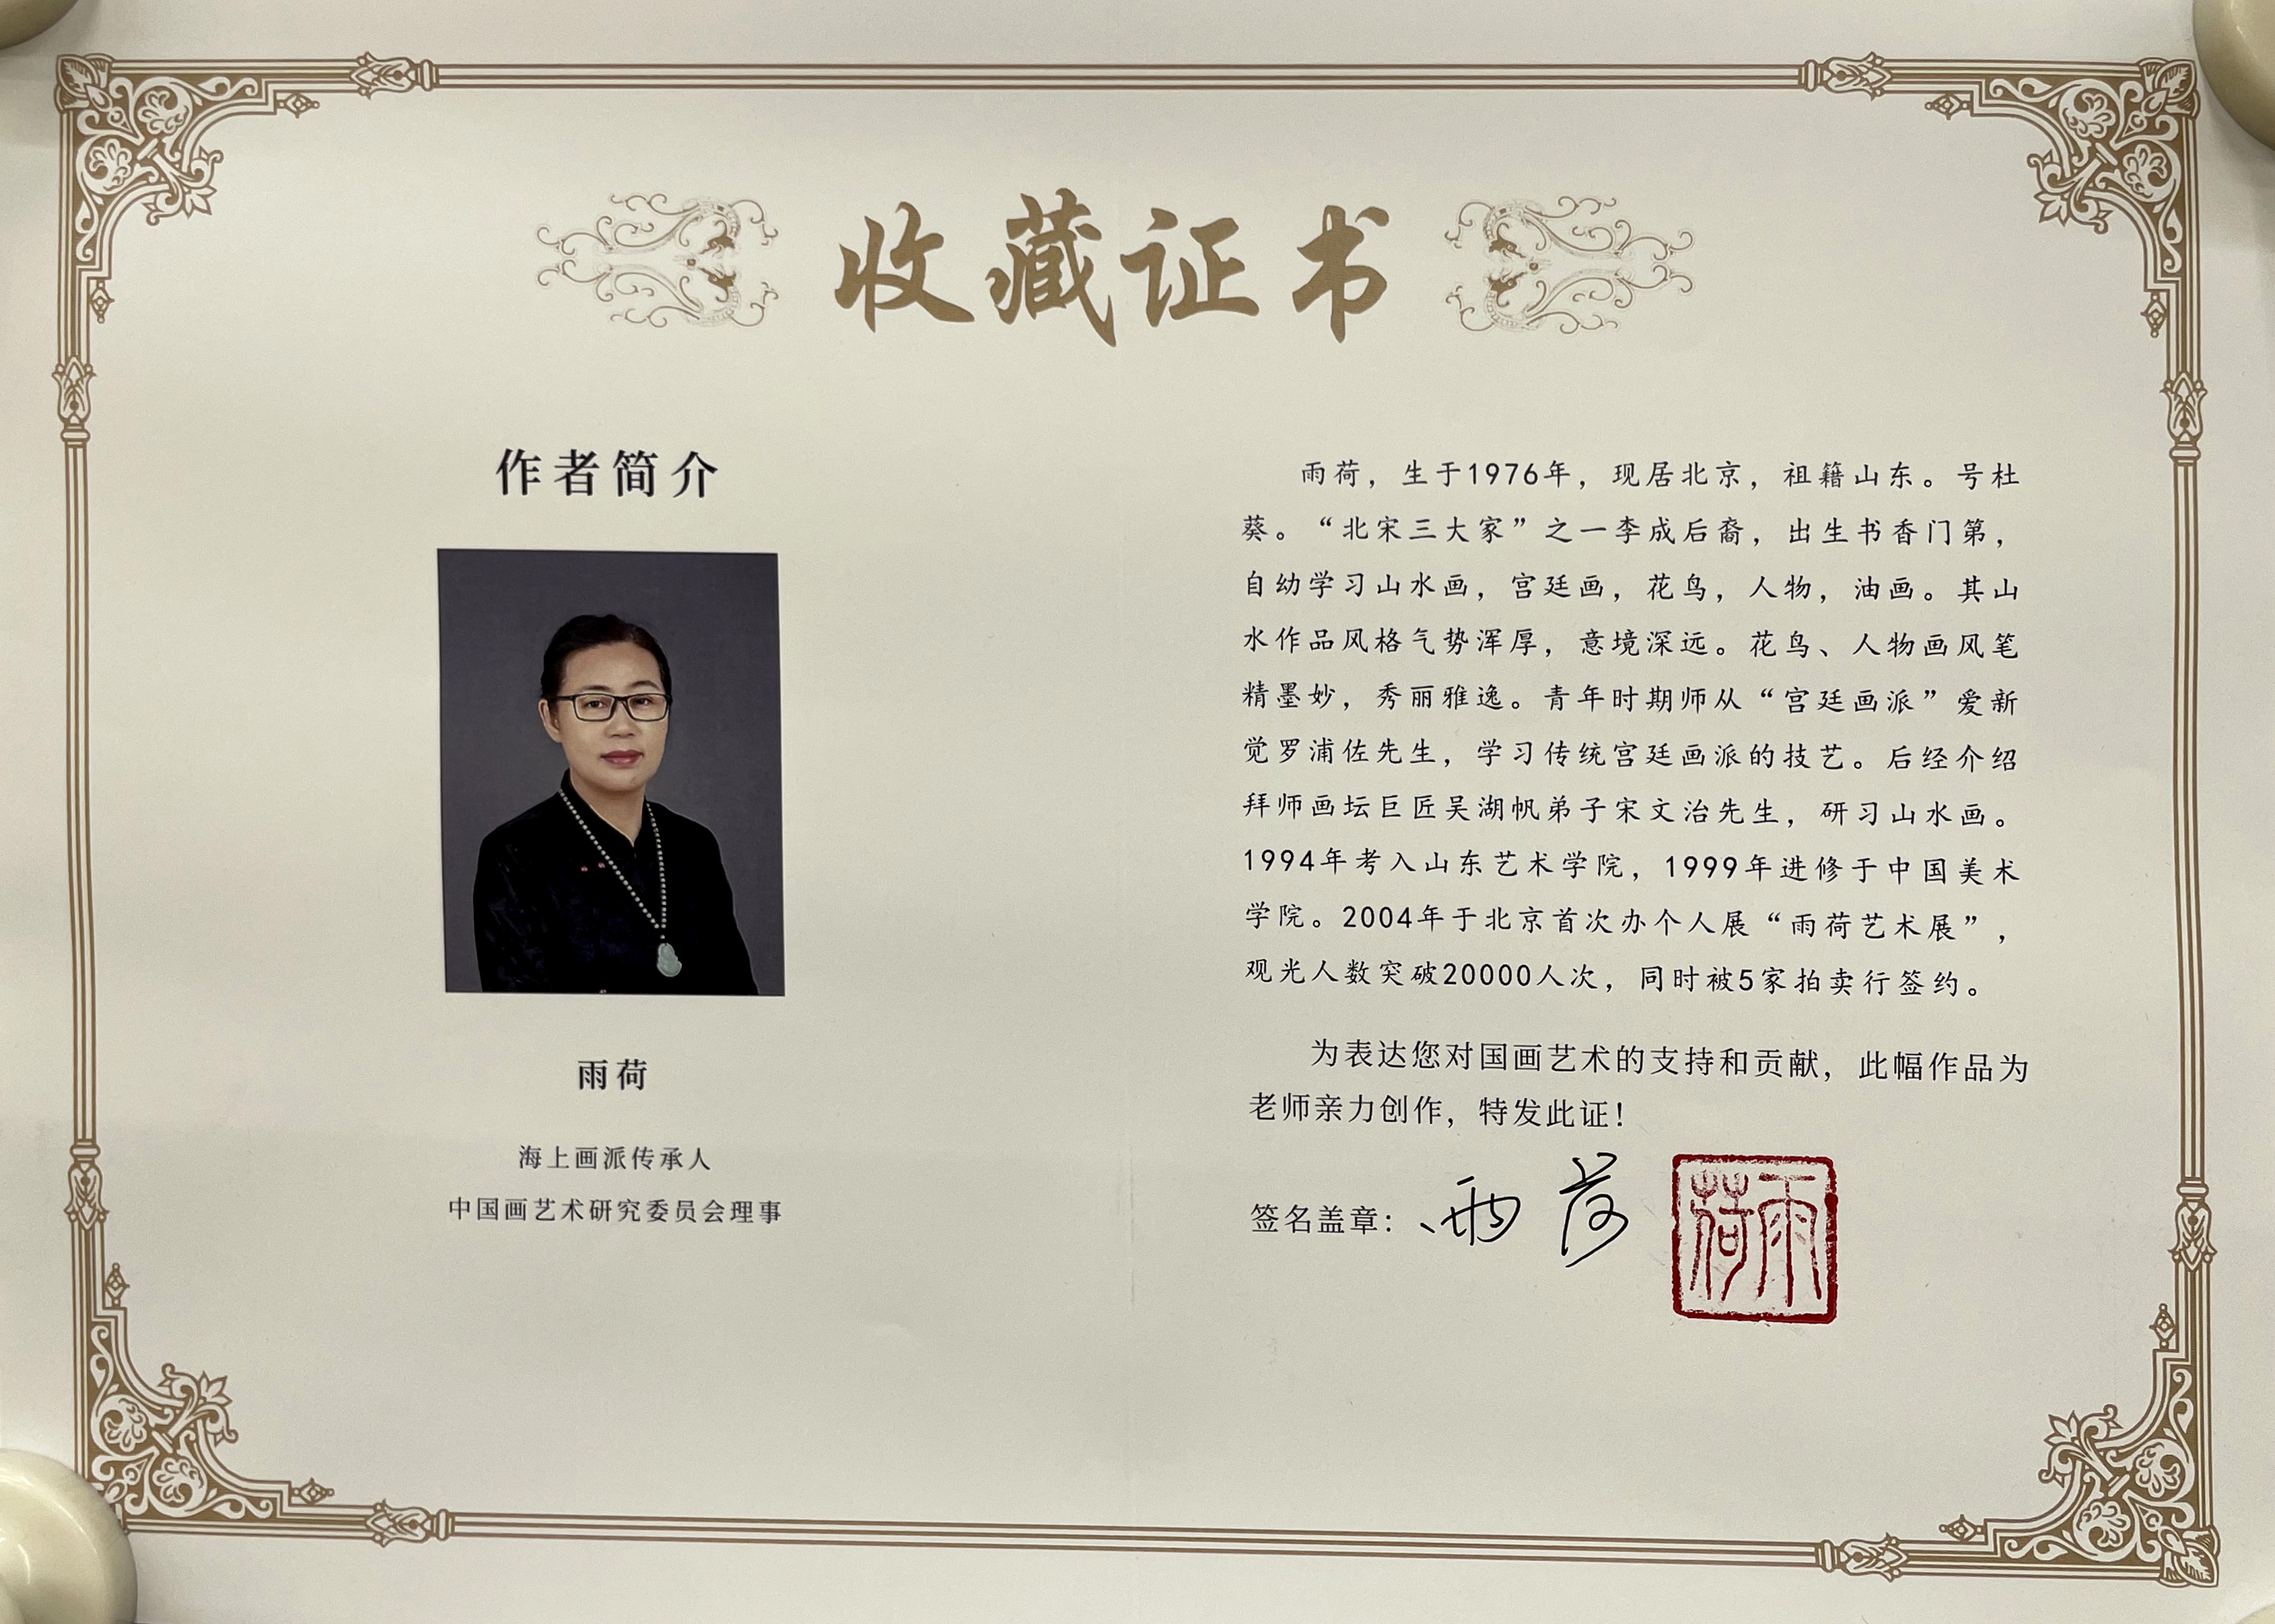 收藏证书
作者简介
雨荷
海上画派传承人
中国画艺术研究委员会理事
雨荷，生于1976年，现居北京，祖籍山东。号杜
葵。“北宋三大家”之一李成后裔，出生书香门第，
自幼学习山水画，宫廷画，花鸟，人物，油画。其山
水作品风格气势浑厚，意境深远。花鸟、人物画风笔
精墨妙，秀丽雅逸。青年时期师从“宫廷画派”爱新
觉罗浦佐先生，学习传统宫廷画派的技艺。后经介绍
拜师画坛巨匠吴湖帆弟子宋文治先生，研习山水画。
1994年考入山东艺术学院，1999年进修于中国美术
学院。2004年于北京首次办个人展“雨荷艺术展”，
观光人数突破20000人次，同时被5家拍卖行签约。
为表达您对国画艺术的支持和贡献，此幅作品为
老师亲力创作，特发此证！
签名盖章：雨荷
雨荷